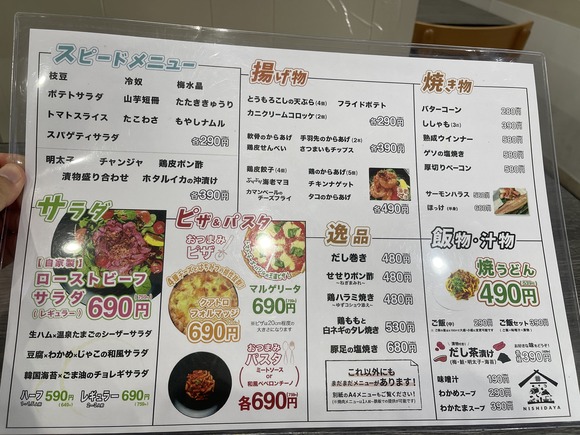 スピードメニュー
枝豆 冷奴 梅水晶
ポテトサラダ 山芋短冊 たたききゅうり
トマトスライス たこわさ もやしナムル
スパゲティサラダ
各290円
明太子 チャンジャ 鶏皮ポン酢
漬物盛り合わせ ホタルイカの沖漬け
各390円
揚げ物
とうもろこしの天ぷら(4個) フライドポテト
カニクリームコロッケ(2個)
各290円
軟骨のからあげ 手羽先のからあげ(2個)
鶏せんべい さつまいもチップス
各390円
鶏皮餃子(4個) 鶏のからあげ(5個)
ぷりぷり海老マヨ チキンナゲット
カマンベールのチーズフライ タコのからあげ
各490円
焼き物
バターコーン 290円
ししゃも(3本) 390円
熟成ウインナー 580円
ゲソの塩焼き 580円
厚切りベーコン 580円
サーモンハラス 580円
ほっけ(半身) 680円
サラダ
【自家製】
ローストビーフ
サラダ
(レギュラー) 690円
生ハム×温泉たまごのシーザーサラダ
豆腐×わかめ×じゃこの和風サラダ
韓国海苔×ごま油のチョレギサラダ
ハーフ 590円
レギュラー 690円
ピザ&パスタ
おつまみ
ピザ
クアトロ
フォルマッジ
690円
マルゲリータ
690円
※ピザは20cm程度の
大きさになります
おつまみ
パスタ
ミートソース
or
和風ペペロンチーノ
各690円
逸品
だし巻き 480円
せせりポン酢 480円
~ねぎまみれ~
鶏ハラミ焼き 480円
~ゆずコショウ添え~
鶏ももと
白ネギのタレ焼き 580円
豚足の塩焼き 680円
これ以外にも
まだまだメニューがあります!
別紙のA4メニューもご覧ください!
飯物・汁物
焼うどん
490円
ご飯(中) 290円
ご飯セット 390円
だし茶漬け
(梅・鮭・明太子・海苔)
各390円
味噌汁 190円
わかめスープ 290円
わかたまスープ 390円
NISHIDAYA